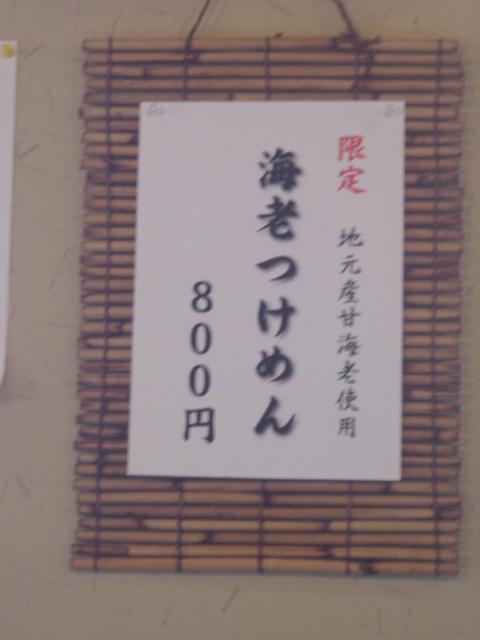 限定 地元産甘海老使用
海老つけめん
800円